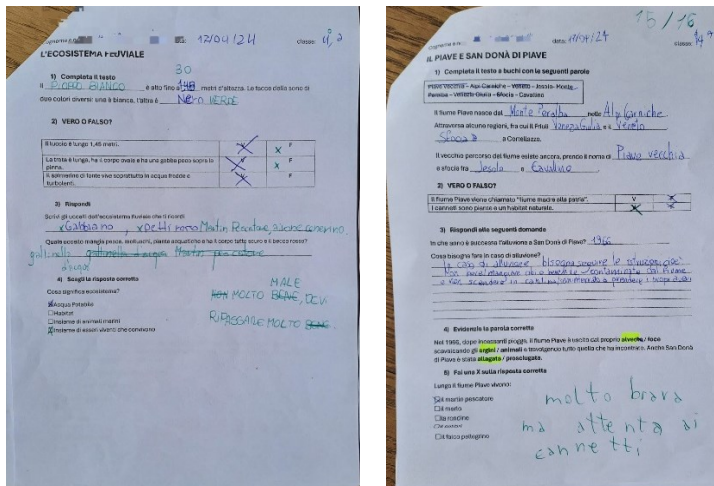 12/04/24
classe: 4^a
L'ECOSISTEMA FLUVIALE
1) Completa il testo
30
Il PIOPPO BIANCO è alto fino a metri d'altezza. Le facce delle sono di
due colori diversi: una è bianca, l'altra è Nero VERDE
2) VERO O FALSO?
Il luccio è lungo 1,45 metri. V X F
La trota è lunga, ha il corpo ovale e ha una gobba poco sopra la
pinna. V X F
turbolenti. V F
3) Rispondi
Scrivi gli uccelli dell'ecosistema fluviale che ti ricordi
Gabbiano, Martin Pescatore,
Quale uccello mangia pesce, molluschi, piante acquatiche e ha il corpo tutto scuro e il becco rosso?
gallinella gallinella d'acqua Martin pescatore
d'acqua
4) Scegli la risposta corretta
MALE
Cosa significa ecosistema?
NON MOLTO BRAVE, DEVI
X Acqua Potabile
RIPASSARE MOLTO BENE.
Habitat
Insieme di animali marini
X Insieme di esseri viventi che convivono
15/16
data: 17/04/24
classe: 4^a
IL PIAVE E SAN DONÀ DI PIAVE
1) Completa il testo a buchi con le seguenti parole
Piave Vecchia - Alpi Carniche - Veneto - Jesolo - Monte
Peralba - Venezia Giulia - Sfocia - Cavallino
Il fiume Piave nasce dal Monte Peralba nelle Alpi Carniche
Attraversa alcune regioni, fra cui il Friuli Venezia Giulia e il Veneto
Sfocia a Cortellazzo.
Il vecchio percorso del fiume esiste ancora, prende il nome di Piave vecchia
e sfocia fra Jesolo e Cavallino.
2) VERO O FALSO?
Il fiume Piave viene chiamato "fiume madre alla patria". V X
I canneti sono pieni e un habitat naturale. X X
3) Rispondi alle seguenti domande
In che anno è successa l'alluvione a San Donà di Piave? 1966
Cosa bisogna fare in caso di alluvione?
In caso di alluvione bisogna seguire le
4) Evidenzia la parola corretta
Nel 1966, dopo incessanti piogge, il fiume Piave è uscito dal proprio alveo / foce
scavalcando gli argini / animali e travolgendo tutto quello che ha incontrato. Anche San Donà
di Piave è stata allagata / prosciugata.
5) Fai una X sulla risposta corretta
Lungo il fiume Piave vivono:
X il martin pescatore
il merlo
la rondine
il falco pellegrino
molto brava
ma attenta ai
cannetti